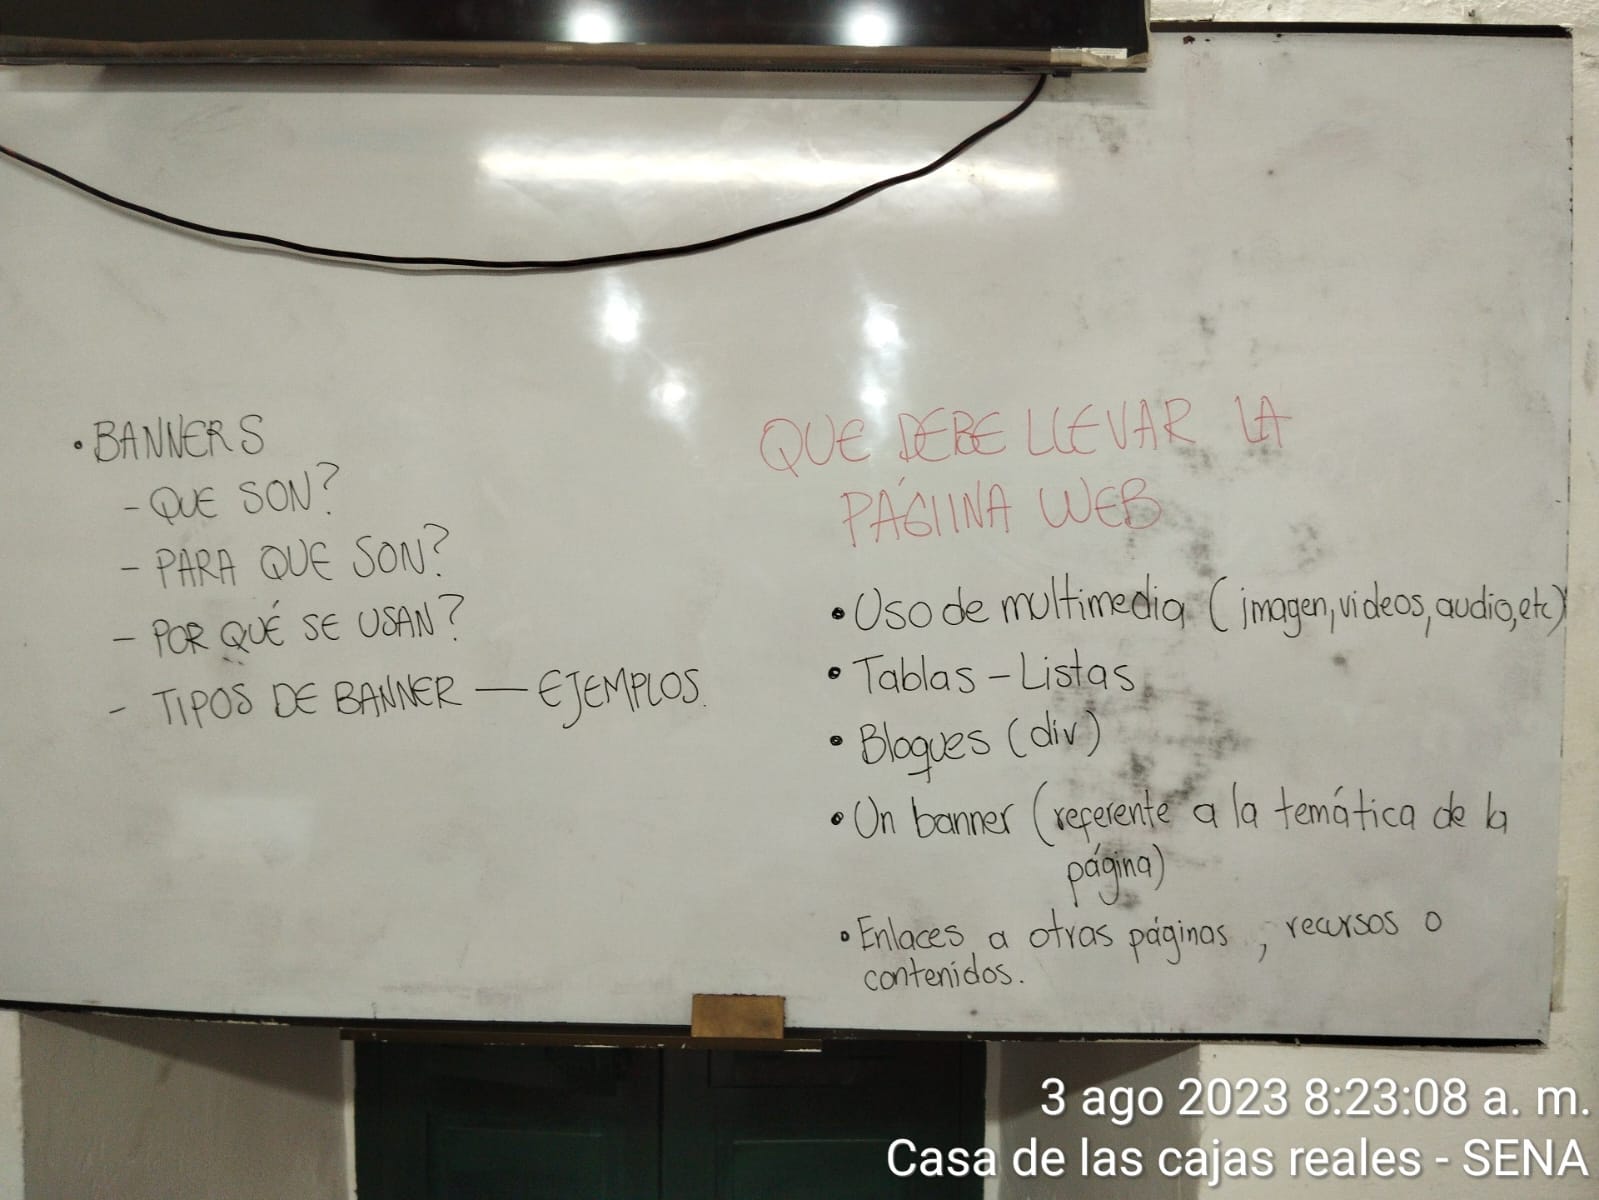 • BANNERS
- QUE SON?
- PARA QUE SON?
- POR QUÉ SE USAN?
- TIPOS DE BANNER — EJEMPLOS.
QUE DEBE LLEVAR LA
PÁGIINA WEB
• Uso de multimedia (imagen, videos, audio, etc)
• Tablas - Listas
• Bloques (div)
• Un banner (referente a la temática de la
página)
• Enlaces a otras páginas, recursos o
contenidos.
3 ago 2023 8:23:08 a. m.
Casa de las cajas reales - SENA